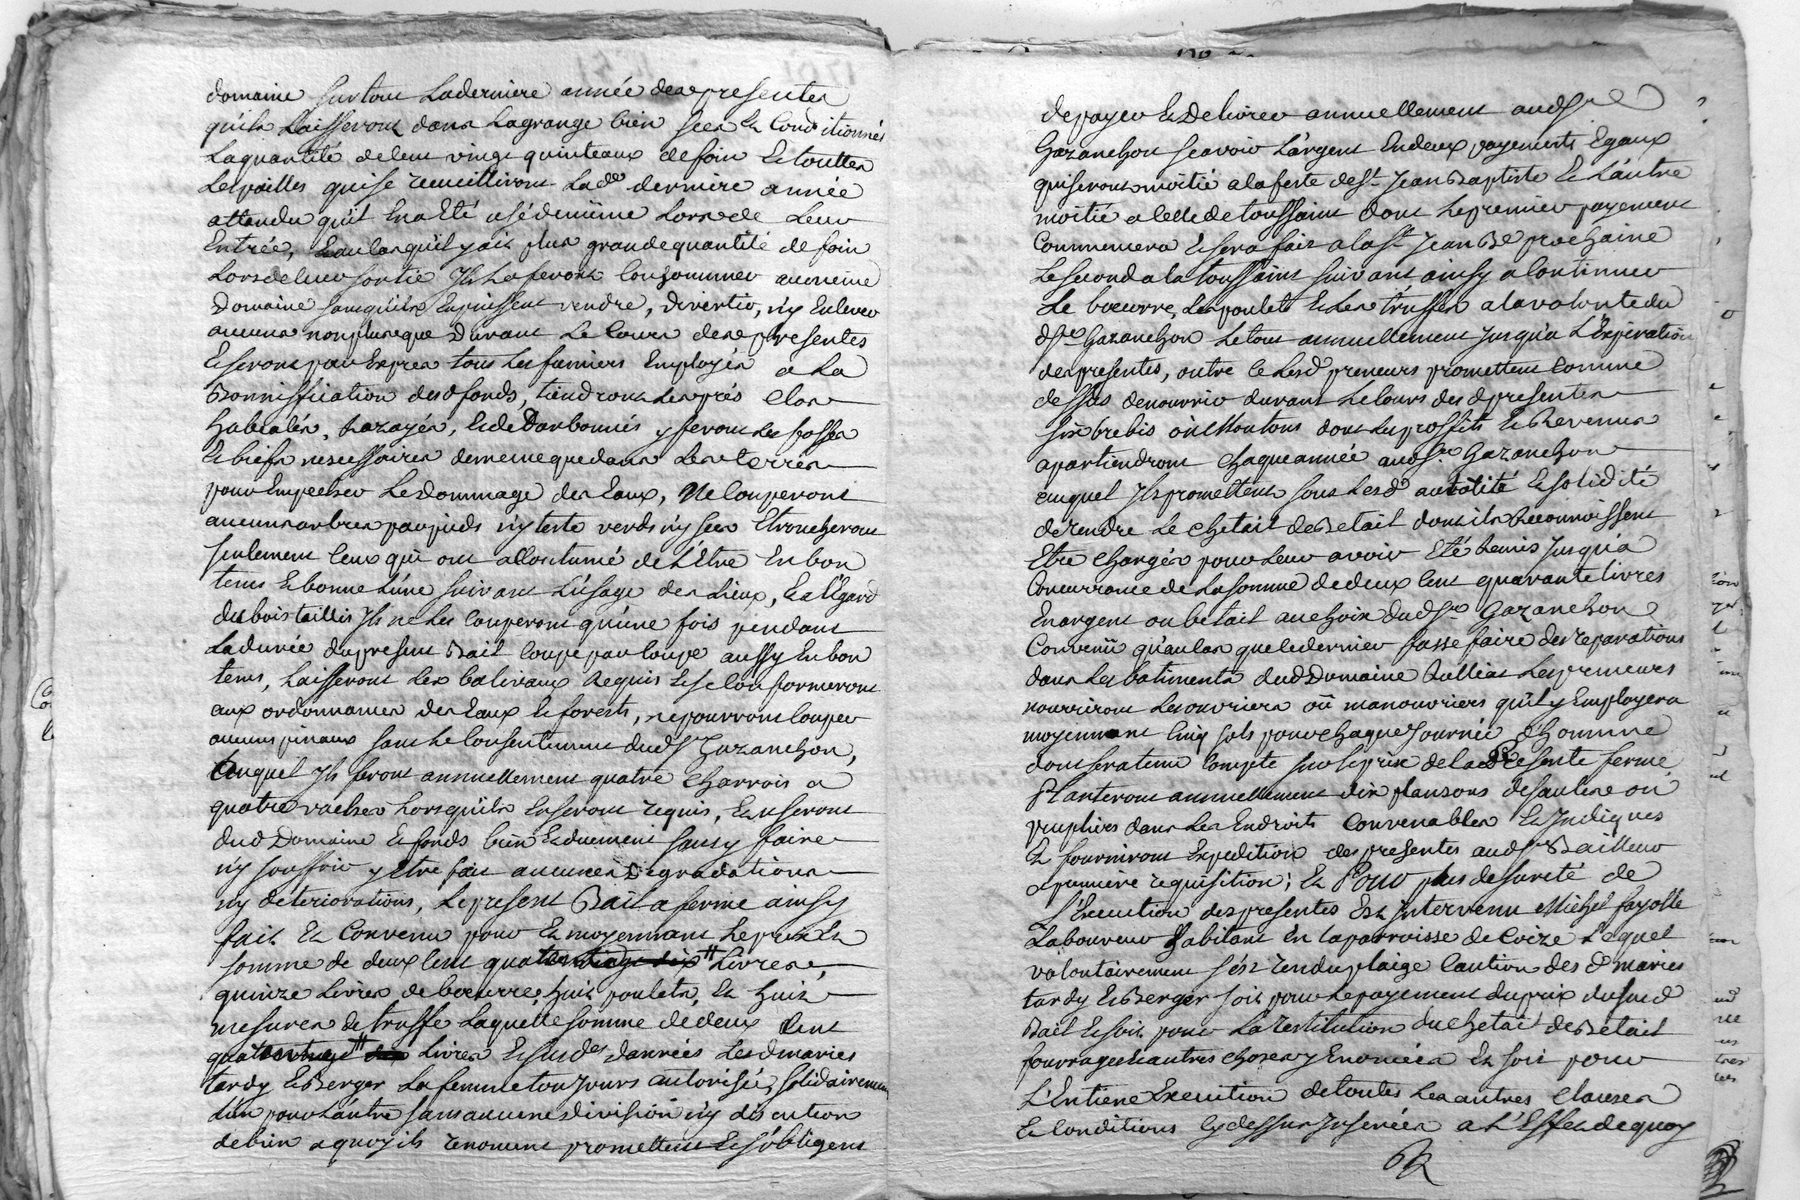 domaine surtout La derniere année des presentes
qu'ils Laisseront dans La grange bien secs Et Conditionnés
La quantité de Cent vingt quinteaux de foin Et touttes
Les pailles qui se recueilliront La de derniere année
attendu qu'il En a Eté usé de même Lors de Leur
Entrée, Eau Cas qu'il y ait plus grande quantité de foin
Lors de Leur sortie Ils La feront Consommer au même
Domaine sans qu'ils En puissent vendre, divertir, n'y Enlever
aucuns non plus que Durant Le Cours des presentes
Et seront par Exprès tous Les fumiers Employés a La
Bonniffication desd fonds, tiendront Les prés Clos
y feront Les fossés
Et biefs nescessaires de meme que dans Les terres
pour Empecher Les dommage des Eaux, Ne Couperont
aucuns arbres par pieds n'y teste verds n'y secs Etroncheront
seulement Ceux qui ont accoutumé de L'être En bon
tems Et bonne Lune suivant L'usage des Lieux, Et a L'Egard
des bois taillis Ils ne Les Couperont qu'une fois pendant
La durée du present Bail Coupe par Coupe aussy En bon
tems, Laisseront Les balivaux Requis Et se Conformeront
aux ordonnances des Eaux Et forests, ne pourront Couper
aucuns pinaux sans Le Consentement dud Sr Gazanchon,
auquel Ils feront annuellement quatre Charrois a
quatre vaches Lorsqu'ils En seront requis, Et useront
dud Domaine Et fonds bien Et duement sans y faire
n'y souffrir y Etre fait aucunes Degradations
n'y deteriorations, Le present Bail a ferme ainsy
fait Et Convenu pour Et moyennant Le prix Et
somme de deux Cent Livres,
quinze Livres de boeurre, huit poulets, Et huit
mesures de truffe Laquelle somme de deux Cent
Livres Et susdes danrées Lesd maries
tardy Et Berger La femme toujours autorisée, solidairement
L'un pour L'autre sans aucune division n'y discution
de bien a quoy ils renoncent promettent Et s'obligent
de payer Et De livrer annuellement aud Sr
Gazanchon scavoir L'argent En deux payements Egaux
qui seront moitié a la feste de St Jean Baptiste Et L'autre
moitié a Celle de toussaint dont Le premier payement
Commencera Et sera fait a la St Jean Bte prochaine
Le second a la toussaint suivant ainsy a Continuer
Le boeurre, Les poulets Et Les truffes a la volonté du
d Sr Gazanchon Le tout annuellement Jusqu'a L'Expiration
des presentes, outre Ce Lesd preneurs promettent Comme
dessus de nourrir durant Le Cours desd presentes
six brebis où Moutons dont Les proffits Et Revenus
apartiendront Chaque année aud Sr Gazanchon
auquel Ils promettent sous Lesd Et solidité
de rendre Le Chetail de Betail dont ils Reconnoissent
Etre Chargés pour Leur avoir Eté Remis Jusqu'a
Concurrance de La somme de deux Cent quarante Livres
En argent ou betail au Choix dud Sr Gazanchon
Convenü qu'au Cas que Le dernier fasse faire des reparations
dans Les batiments dud Domaine Les preneurs
nourriront Les ouvriers où manouvriers qu'il y Employera
moyennant Cinq sols pour Chaque Journée d'homme
dont sera tenu Compte sur Le prix de La presente ferme,
Planteront annuellement dix plansons de saules ou
peupliers dans Les Endroits Convenables Et Indiqués
Et fourniront Expedition des presentes aud Sr Bailleur
a premiere requisition; Et Pour plus de sureté de
L'Execution des presentes Est Intervenu Michel fayolle
Laboureur Habitant En La parroisse de Coize Lequel
volontairement s'est rendu plaige Caution desd maries
tardy Et Berger soit pour Le payement du prix du susd
Bail Et soit pour La restitution du Chetail de Betail
fourrages Et autres choses y Enoncées Et soit pour
L'Entiere Execution de toutes Les autres Clauses
Et Conditions Cy dessus Inserées a L'Effet de quoy